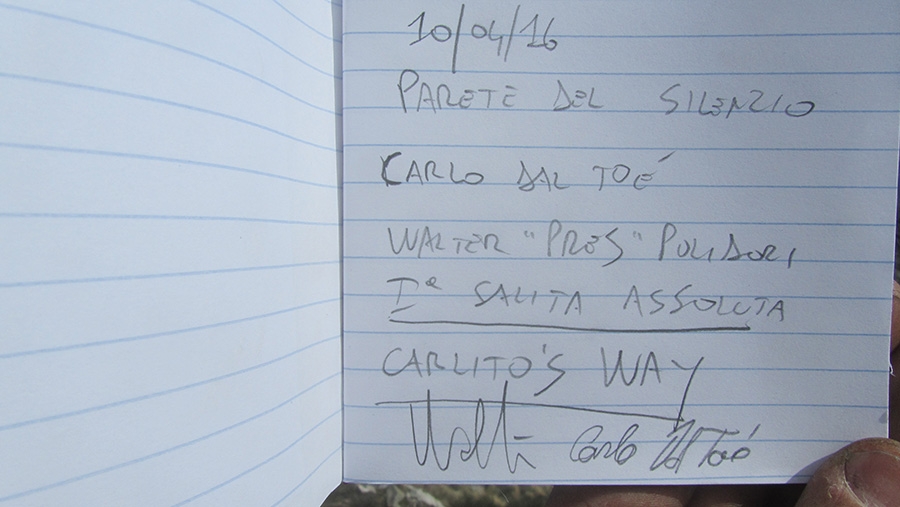 10/04/16
PARETE DEL SILENZIO
CARLO DAL TOÉ
WALTER "PRES" POLIDORI
Iª SALITA ASSOLUTA
CARLITO'S WAY
Carlo Dal Toé